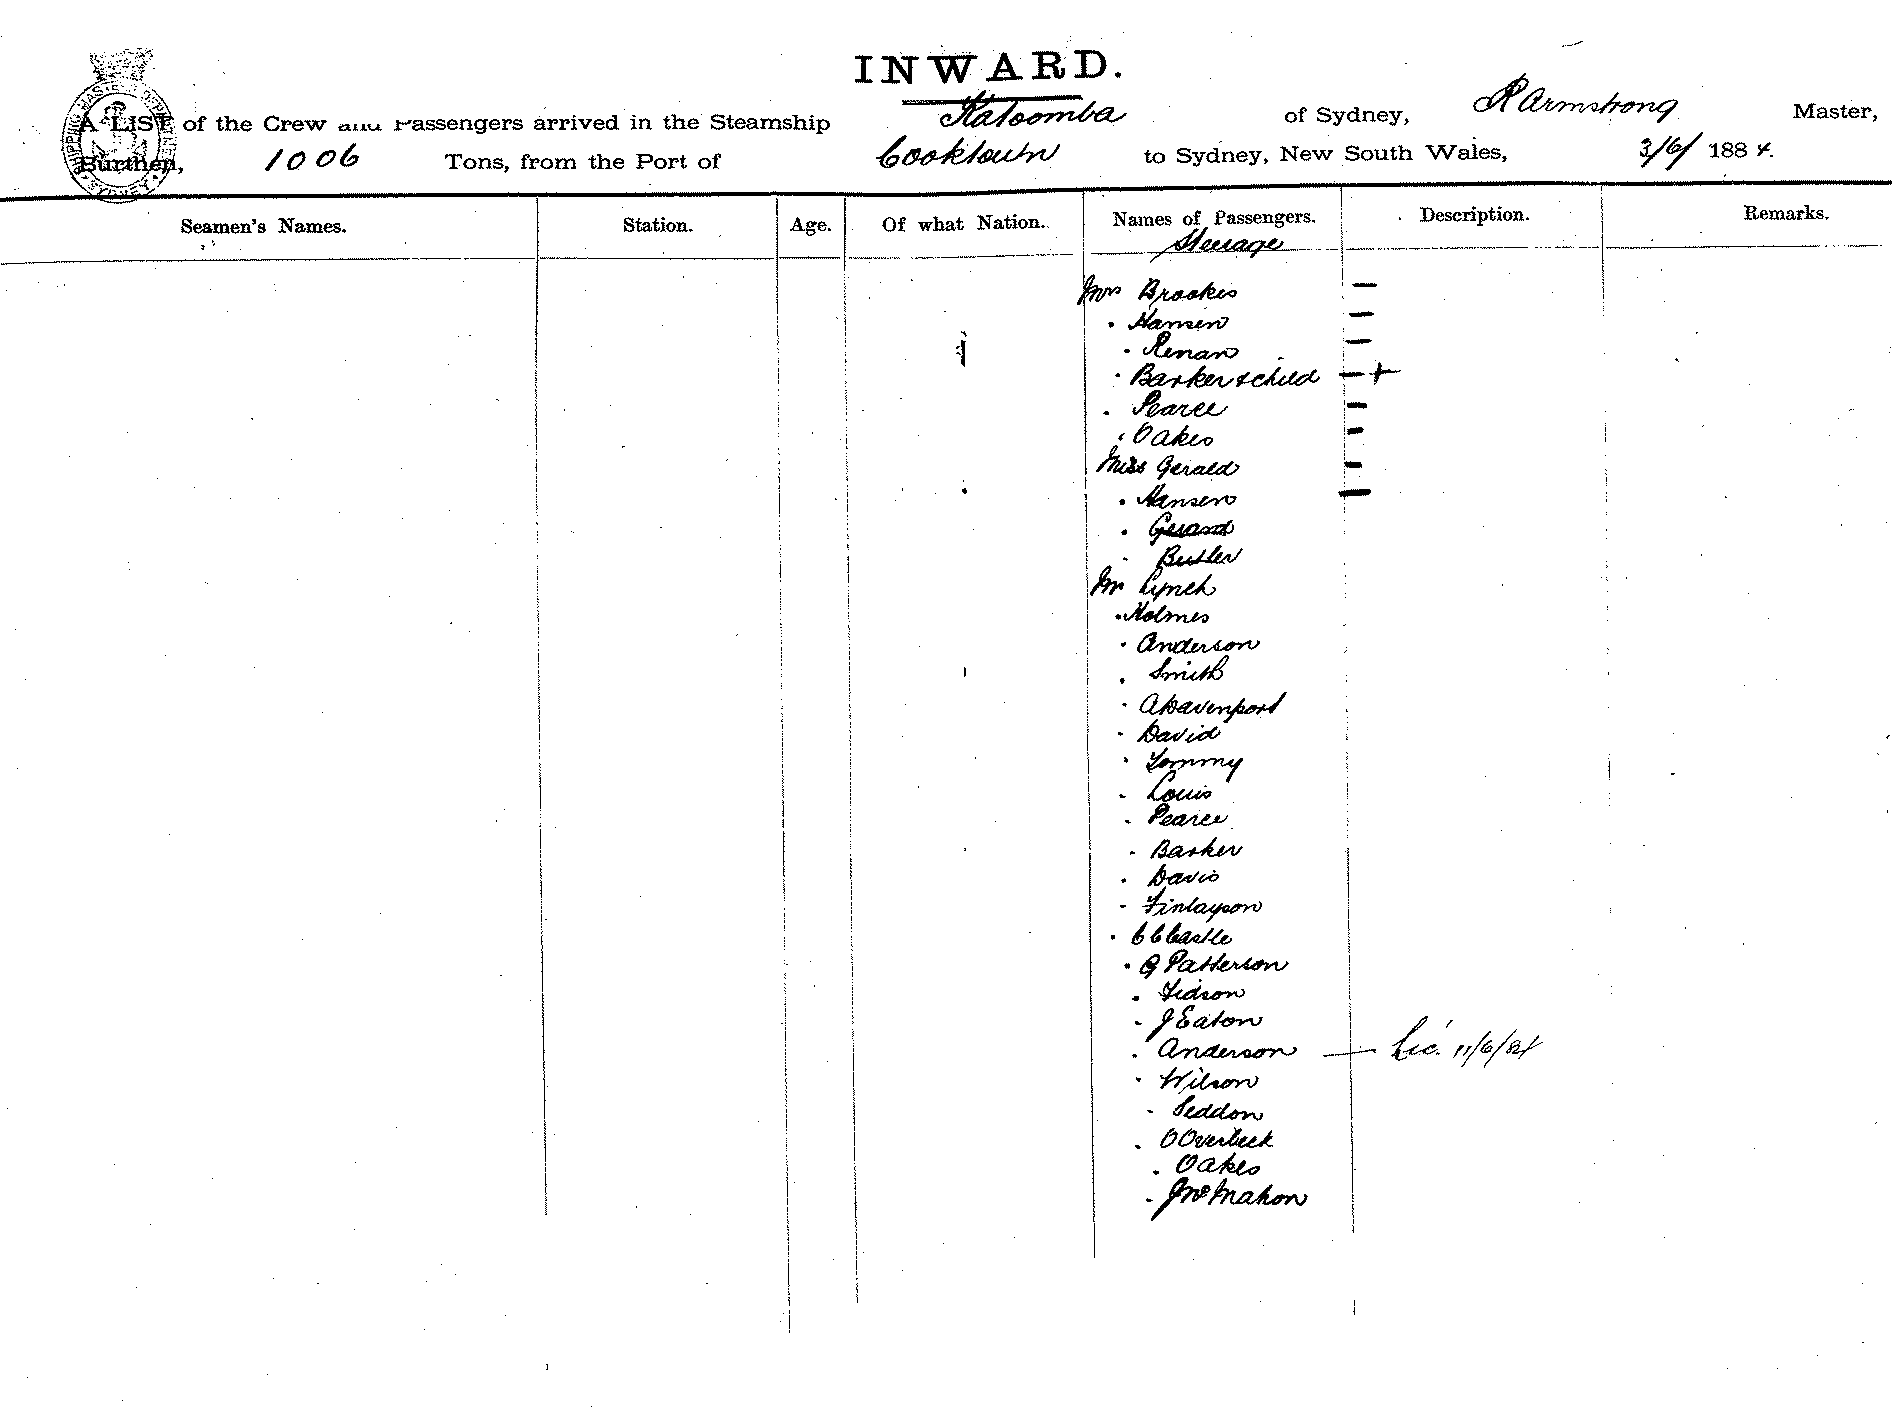 INWARD.
A LIST of the Crew and Passengers arrived in the Steamship Katoomba of Sydney, R Armstrong Master,
Burthen, 1006 Tons, from the Port of Cooktown to Sydney, New South Wales, 3/6/ 1884.
Seamen's Names. Station. Age. Of what Nation. Names of Passengers. Description. Remarks.
Steerage
Mrs Brookes —
. Hansen —
. Renan —
. Barker & child — +
. Pearce —
. Oakes —
Miss Gerald —
. Hansen —
. Gerard
. Butler
Mr Lynch
. Holmes
. Anderson
. Smith
. A Davenport
. David
. Tommy
. Louis
. Pearce
. Barker
. Davis
. Finlayson
. C C Castle
. G Patterson
. Tidson
. J Eaton
. Anderson — Lic. 11/6/84
. Wilson
. Seddon
. O Overbeck
. Oakes
. J McMahon